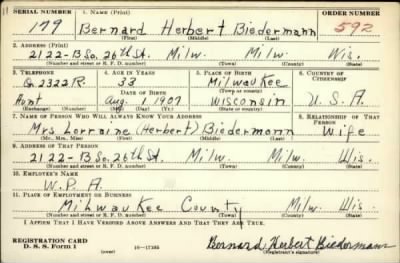 SERIAL NUMBER 1. NAME (Print) ORDER NUMBER
179 Bernard Herbert Biedermann 592
(First) (Middle) (Last)
2. ADDRESS (Print)
2122-B So. 26th St. Milw. Milw. Wis.
(Number and street or R. F. D. number) (Town) (County) (State)
3. TELEPHONE 4. AGE IN YEARS 5. PLACE OF BIRTH 6. COUNTRY OF CITIZENSHIP
Or. 2322 R. 33 Milwaukee
DATE OF BIRTH (Town or county)
Aug. 1907 Wisconsin U.S.A.
(Exchange) (Number) (Mo.) (Day) (Yr.) (State or country)
7. NAME OF PERSON WHO WILL ALWAYS KNOW YOUR ADDRESS 8. RELATIONSHIP OF THAT PERSON
Mrs. Lorraine (Herbert) Biedermann Wife
(Mr., Mrs., Miss) (First) (Middle) (Last)
9. ADDRESS OF THAT PERSON
2122-B So. 26th St. Milw. Milw. Wis.
(Number and street or R. F. D. number) (Town) (County) (State)
10. EMPLOYER'S NAME
W.P.A.
11. PLACE OF EMPLOYMENT OR BUSINESS
Milwaukee County Milw. Wis.
(Number and street or R. F. D. number) (Town) (County) (State)
I AFFIRM THAT I HAVE VERIFIED ABOVE ANSWERS AND THAT THEY ARE TRUE.
REGISTRATION CARD
D. S. S. Form 1 (over) 16-17105 Bernard Herbert Biedermann
(Registrant's signature)